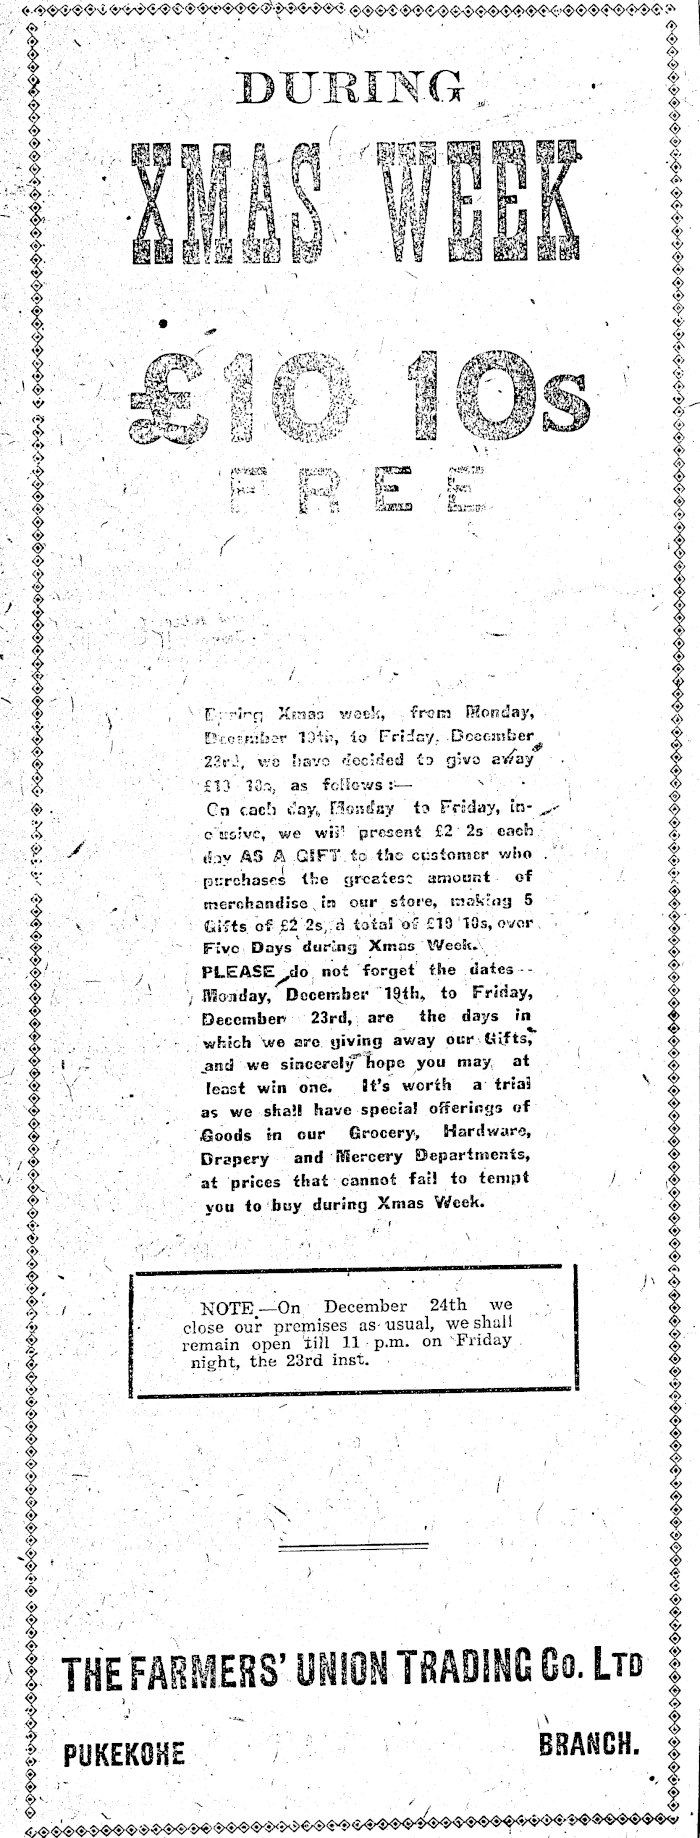 DURING
XMAS WEEK
£10 10s
FREE
During Xmas week, from Monday,
December 19th, to Friday, December
23rd, we have decided to give away
£10 10s, as follows:—
On each day, Monday to Friday, in-
clusive, we will present £2 2s each
day AS A GIFT to the customer who
purchases the greatest amount of
merchandise in our store, making 5
Gifts of £2 2s, a total of £10 10s, over
Five Days during Xmas Week.
PLEASE do not forget the dates--
Monday, December 19th, to Friday,
December 23rd, are the days in
which we are giving away our Gifts,
and we sincerely hope you may at
least win one. It's worth a trial
as we shall have special offerings of
Goods in our Grocery, Hardware,
Drapery and Mercery Departments,
at prices that cannot fail to tempt
you to buy during Xmas Week.
NOTE.—On December 24th we
close our premises as usual, we shall
remain open till 11 p.m. on Friday
night, the 23rd inst.
THE FARMERS' UNION TRADING Co. LTD
PUKEKOHE BRANCH.